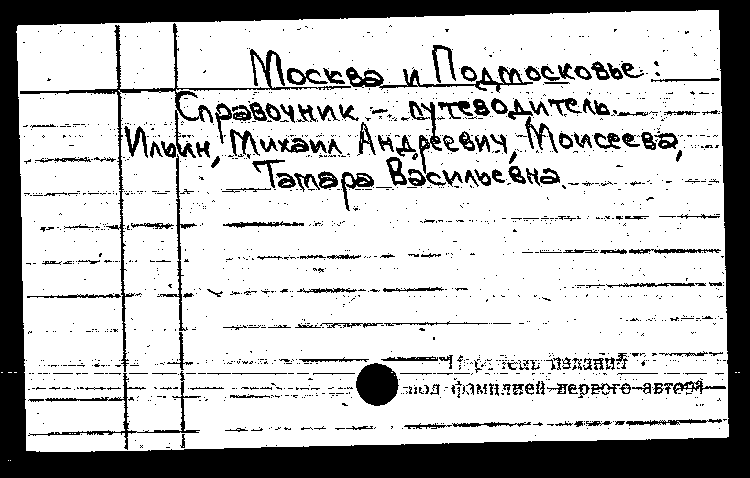 Москва и Подмосковье:
Справочник - путеводитель.
Ильин, Михаил Андреевич, Моисеева,
Тамара Васильевна
Перечень изданий
под фамилией первого автора